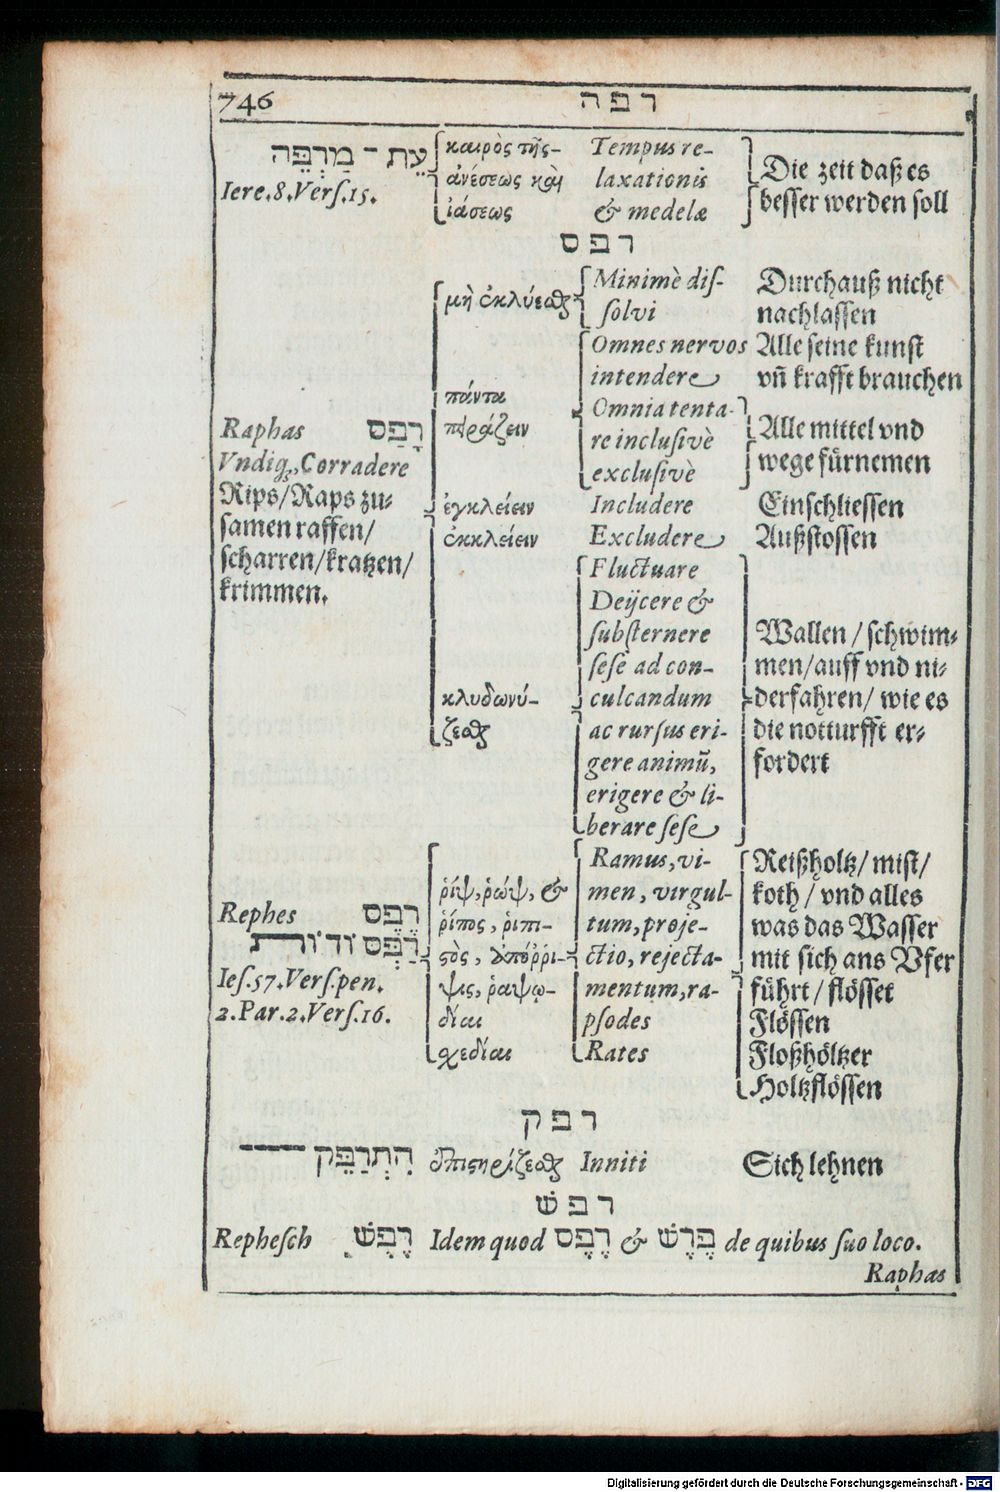 746 רפה
עֵת־מַרְפֵּה
Iere.8.Verſ.15.
καιρὸς τῆς-
ἀνέσεως καὶ
ἰάσεως
Tempus re-
laxationis
& medelæ
Die zeit daß es
beſſer werden ſoll
רפס
Raphas רָפַס
Vndiq;, Corradere
Rips/Raps zu-
ſamen raffen/
ſcharren/kratzen/
krimmen.
μὴ ἐκλύεσθαι
Minimè diſ-
ſolvi
Durchauß nicht
nachlaſſen
πάντα
πειράζειν
Omnes nervos
intendere
Alle ſeine kunſt
vñ krafft brauchen
Omnia tenta-
re incluſivè
excluſivè
Alle mittel vnd
wege fürnemen
ἐγκλείειν Includere Einſchlieſſen
ἐκκλείειν Excludere Außſtoſſen
κλυδωνί-
ζεσθαι
Fluctuare
Deijcere &
ſubſternere
ſeſe ad con-
culcandum
ac rurſus eri-
gere animũ,
erigere & li-
berare ſeſe
Wallen / ſchwim-
men/auff vnd ni-
derfahren/ wie es
die notturfft er-
fordert
Rephes רֶפֶס
Ieſ.57.Verſ.pen.
2.Par.2.Verſ.16.
ῥίψ, ῥώψ, &
ῥίπος, ῥιπι-
σὸς, ἀπόῤῥι-
ψις, ῥαψῳ-
δίαι
σχεδίαι
Ramus, vi-
men, virgul-
tum, proje-
ctio, rejecta-
mentum, ra-
pſodes
Rates
Reißholtz/ miſt/
koth / vnd alles
was das Waſſer
mit ſich ans Vfer
führt / flöſſet
Flöſſen
Floßhöltzer
Holtzflöſſen
רפק
הִתְרַפֵּק ἐπιστηρίζεσθαι Inniti Sich lehnen
רפשׁ
Repheſch רֶפֶשׁ Idem quod רֶפֶס & פֶרֶשׁ de quibus ſuo loco.
Raphas
Digitalisierung gefördert durch die Deutsche Forschungsgemeinschaft - DFG